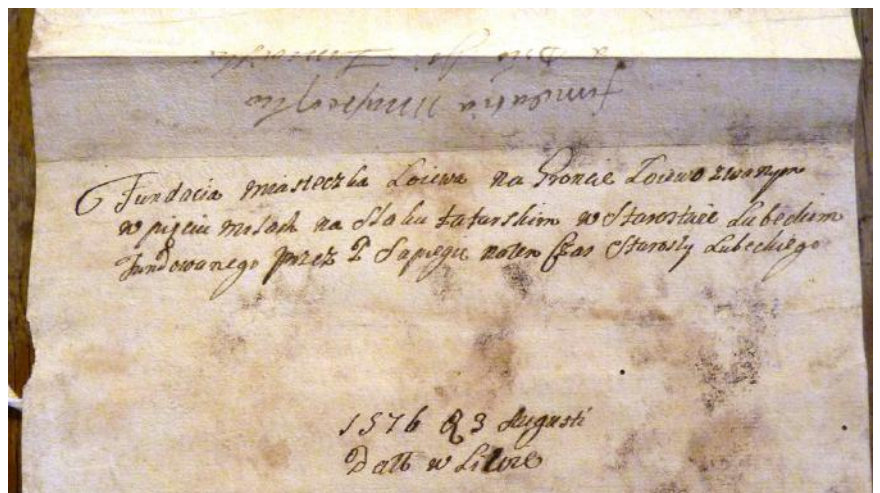 Fundacia miasteczka Loiewa na Groncie Loiewo zwanym
w pięciu milach na Slaku tatarskim w Starostwie Lubeckim
fundowanego przez P Sapiegę naten czas Starosty Lubeckiego
1576 23 Augusti
Datt w